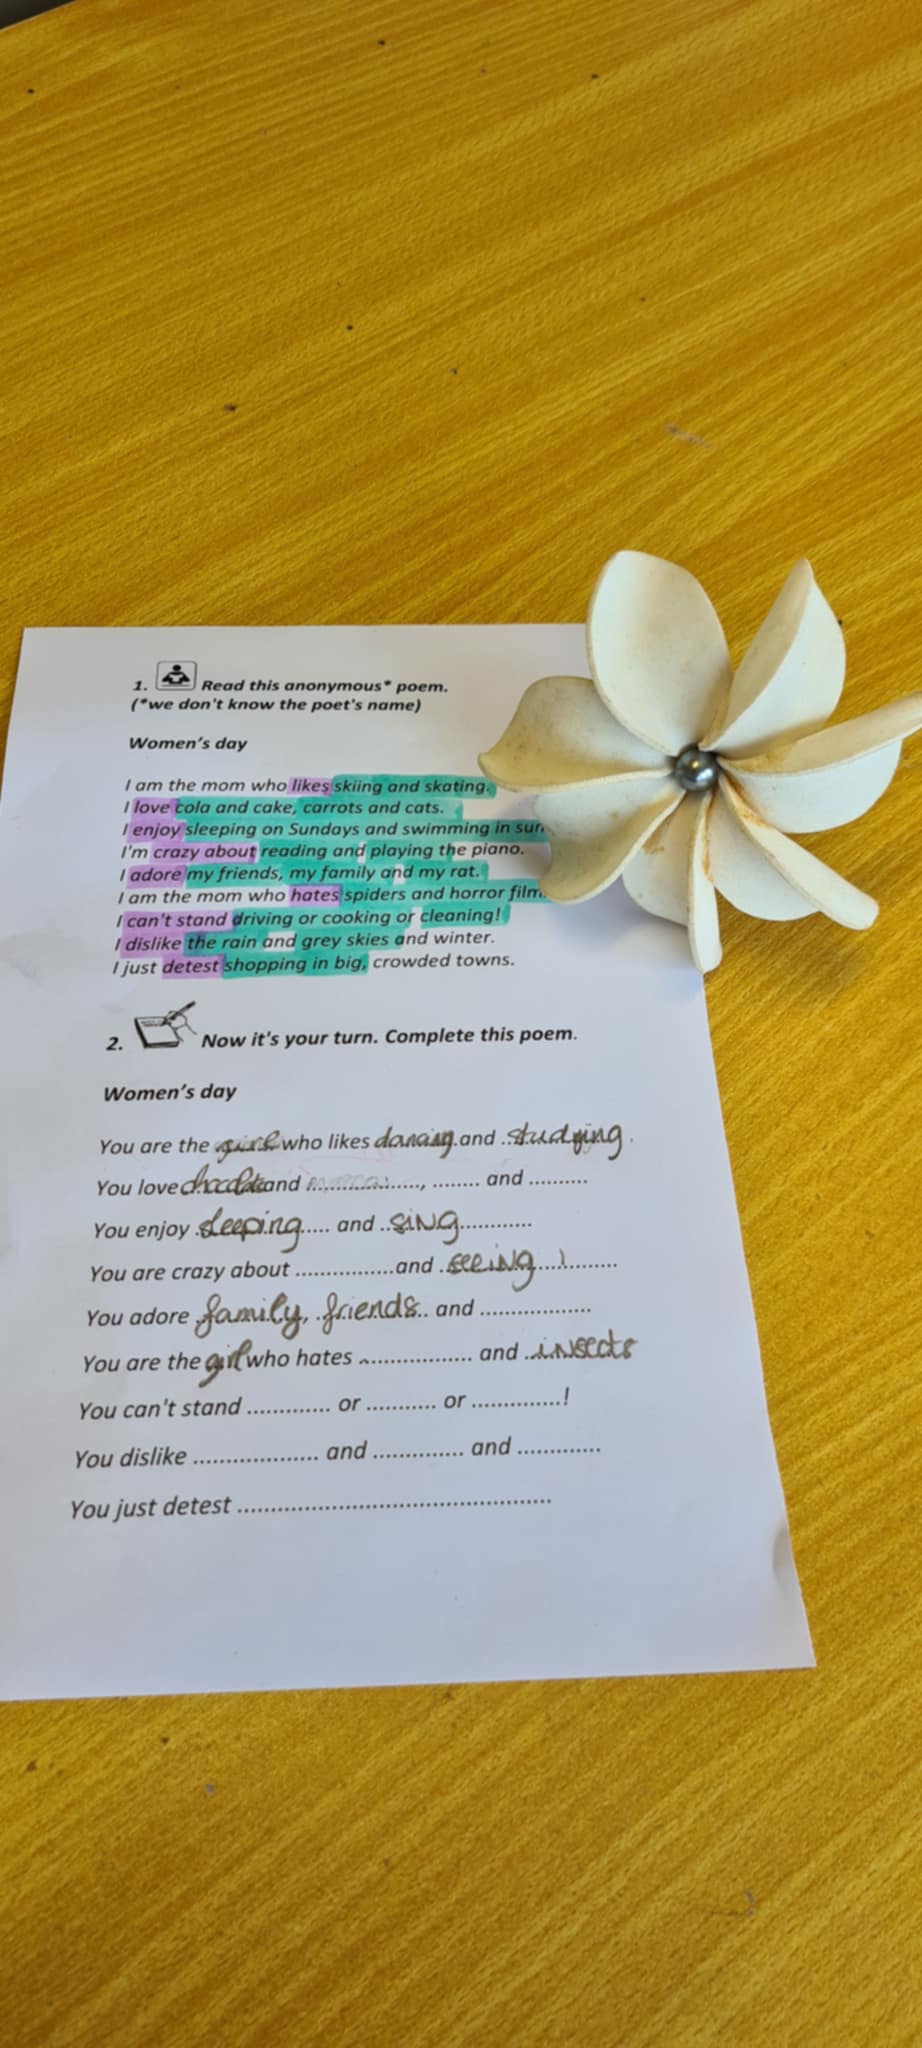 1. Read this anonymous* poem.
(*we don't know the poet's name)
Women's day
I am the mom who likes skiing and skating.
I love cola and cake, carrots and cats.
I enjoy sleeping on Sundays and swimming in
I'm crazy about reading and playing the piano.
I adore my friends, my family and my rat.
I am the mom who hates spiders and horror film
I can't stand driving or cooking or cleaning!
I dislike the rain and grey skies and winter.
I just detest shopping in big, crowded towns.
2. Now it's your turn. Complete this poem.
Women's day
You are the girl who likes dancing and studying.
You love and ................., ........ and ..........
You enjoy sleeping ..... and ..sing............
You are crazy about ................and ..seeing..............
You adore family, friends.. and .................
You are the girl who hates ................. and ..insects
You can't stand ............. or ........... or ..............!
You dislike ................... and .............. and .............
You just detest ...............................................